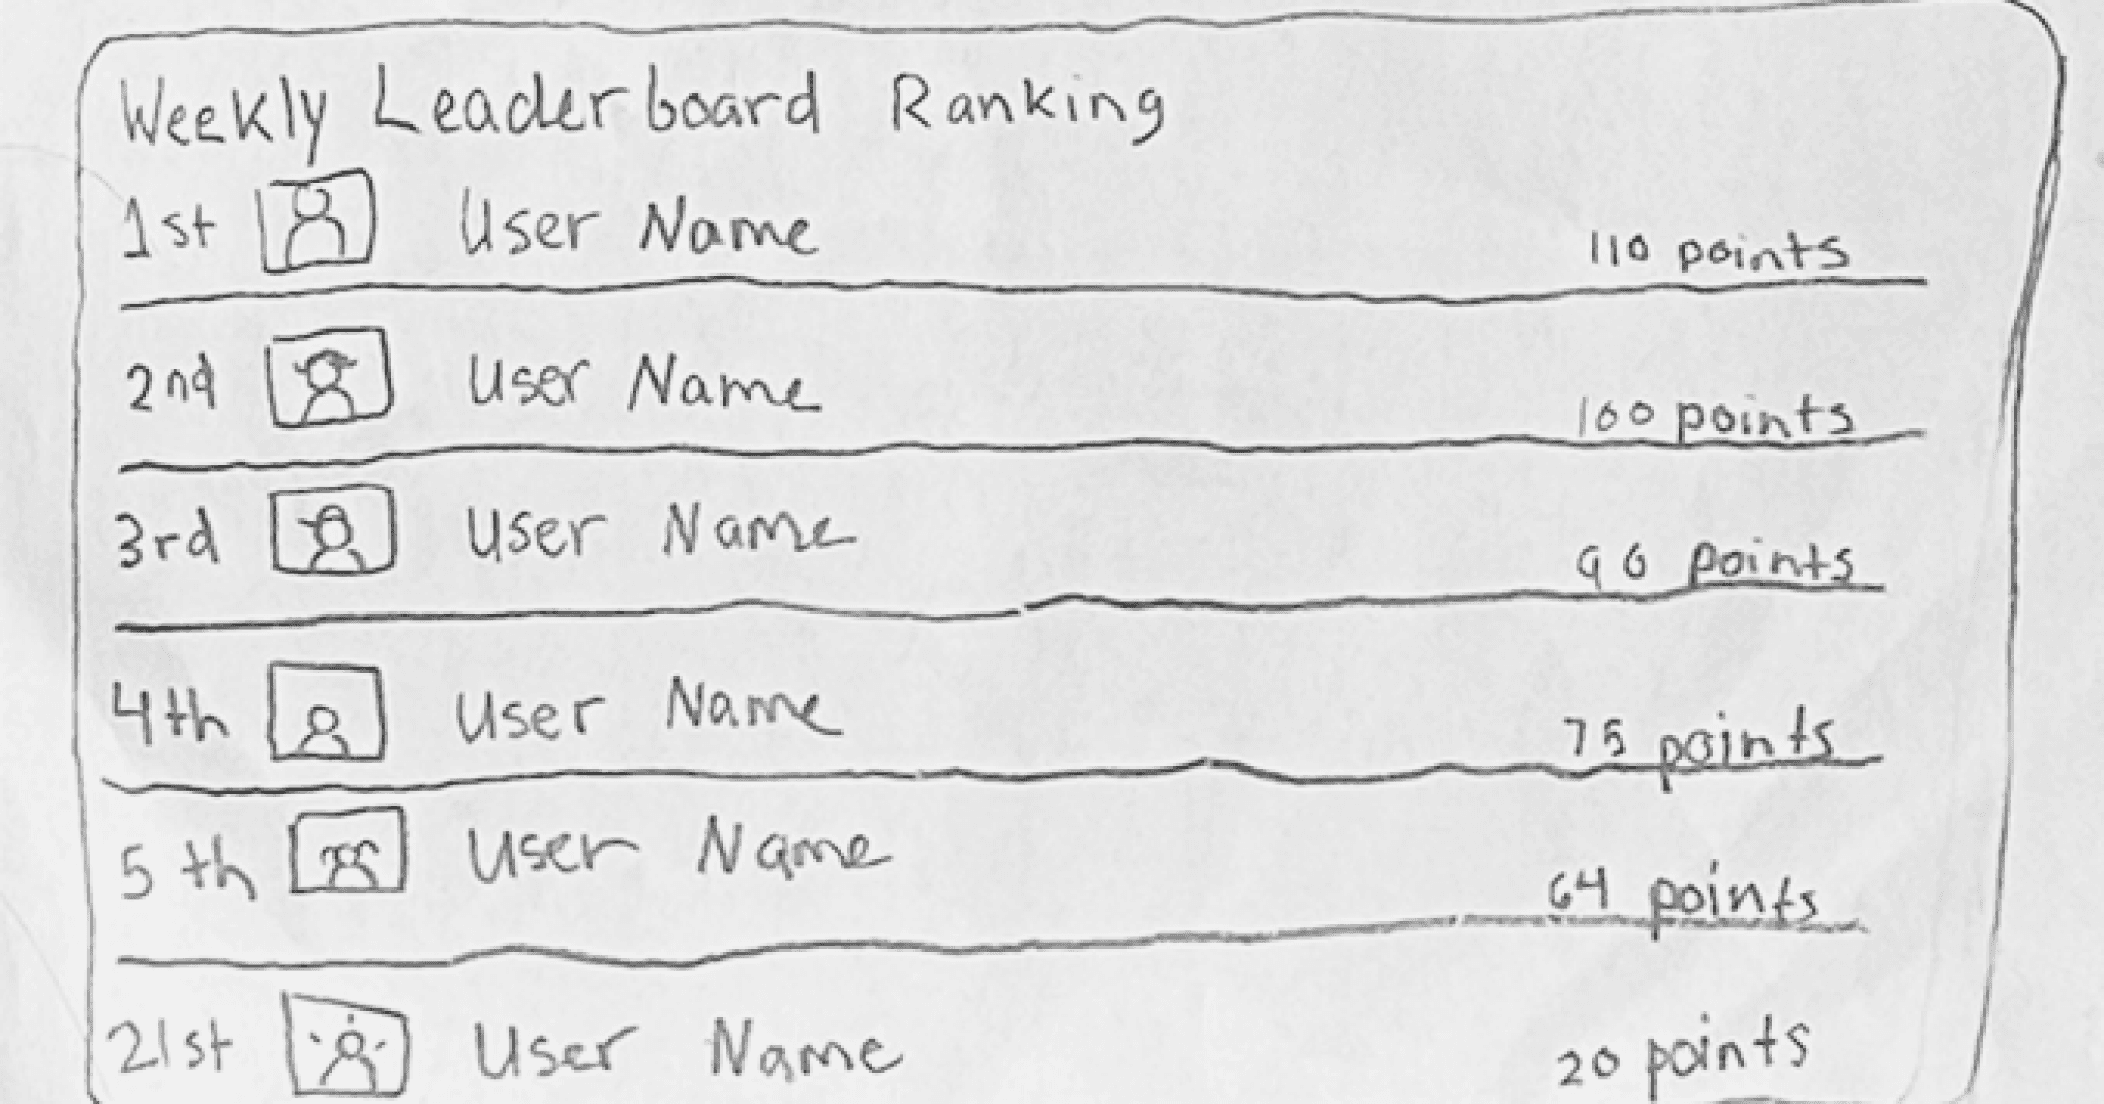 Weekly Leaderboard Ranking
1st User Name 110 points
2nd User Name 100 points
3rd User Name 90 points
4th User Name 75 points
5th User Name 64 points
21st User Name 20 points